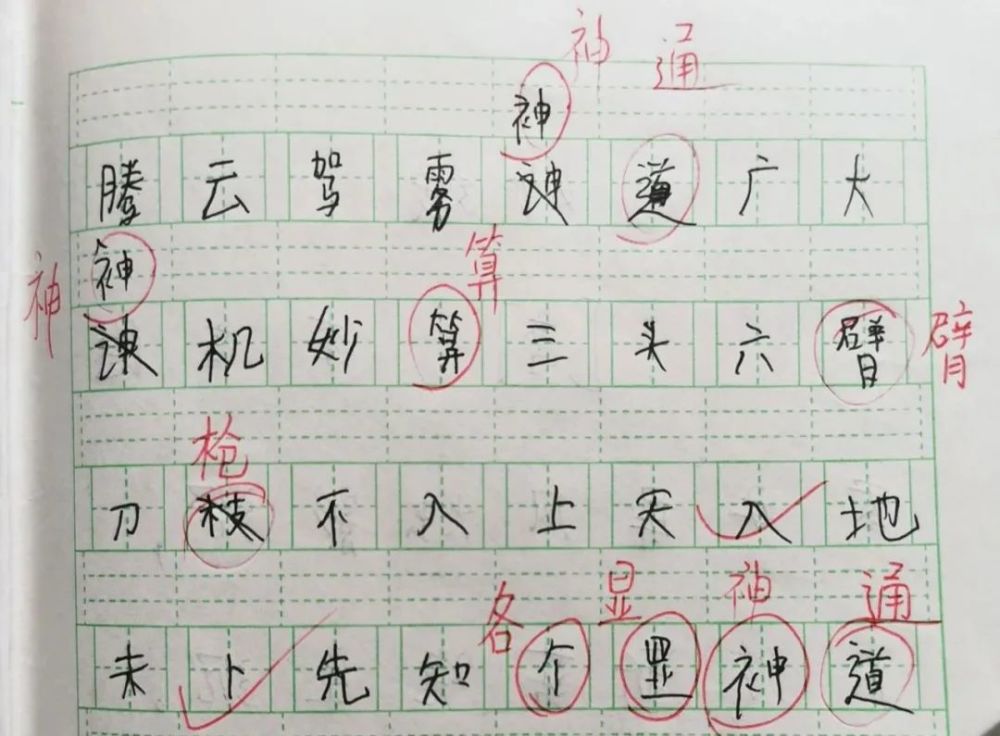 神 通
神
腾云驾雾 道广大
神 神 算
机妙算三头六臂 臂
枪
刀枝不入上天入地
各 显 神 通
未卜先知个显神道